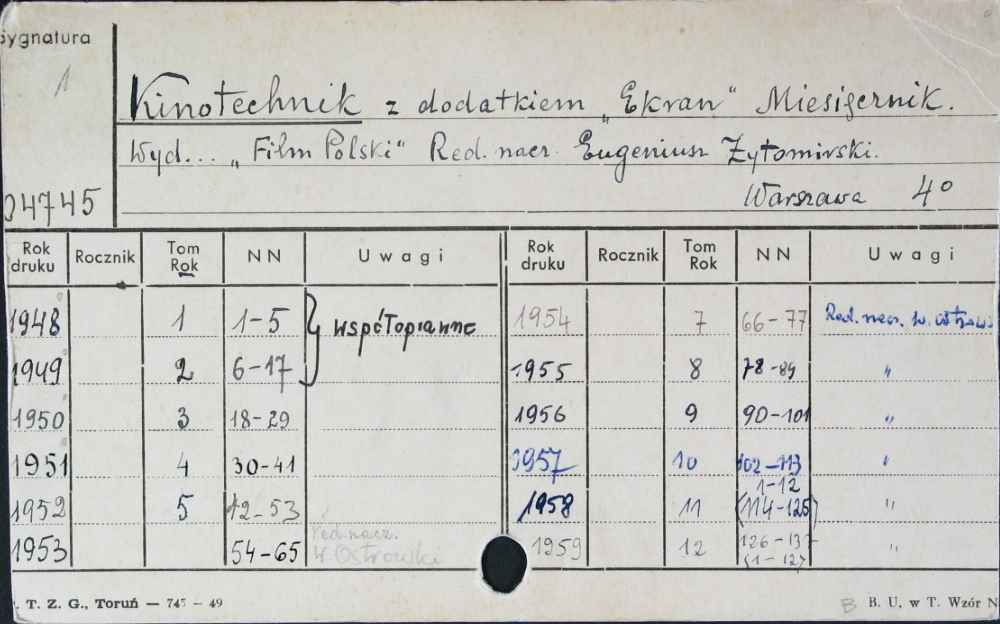 Sygnatura
1
Kinotechnik z dodatkiem „Ekran" Miesięcznik.
Wyd... „Film Polski" Red. nacz. Eugeniusz Żytomirski.
Warszawa 4°
04745
Rok druku Rocznik Tom Rok NN Uwagi Rok druku Rocznik Tom Rok NN Uwagi
1948 1 1-5 współoprawne 1954 7 66-77 Red. nacz. W. Ostrows
1949 2 6-17 1955 8 78-89 "
1950 3 18-29 1956 9 90-101 "
1951 4 30-41 1957 10 102-113 "
1-12
1952 5 42-53 1958 11 (114-125) "
1953 54-65 Red. nacz. W. Ostrowski 1959 12 126-137 (1-12) "
. T. Z. G., Toruń — 745 — 49
B B. U. w T. Wzór N